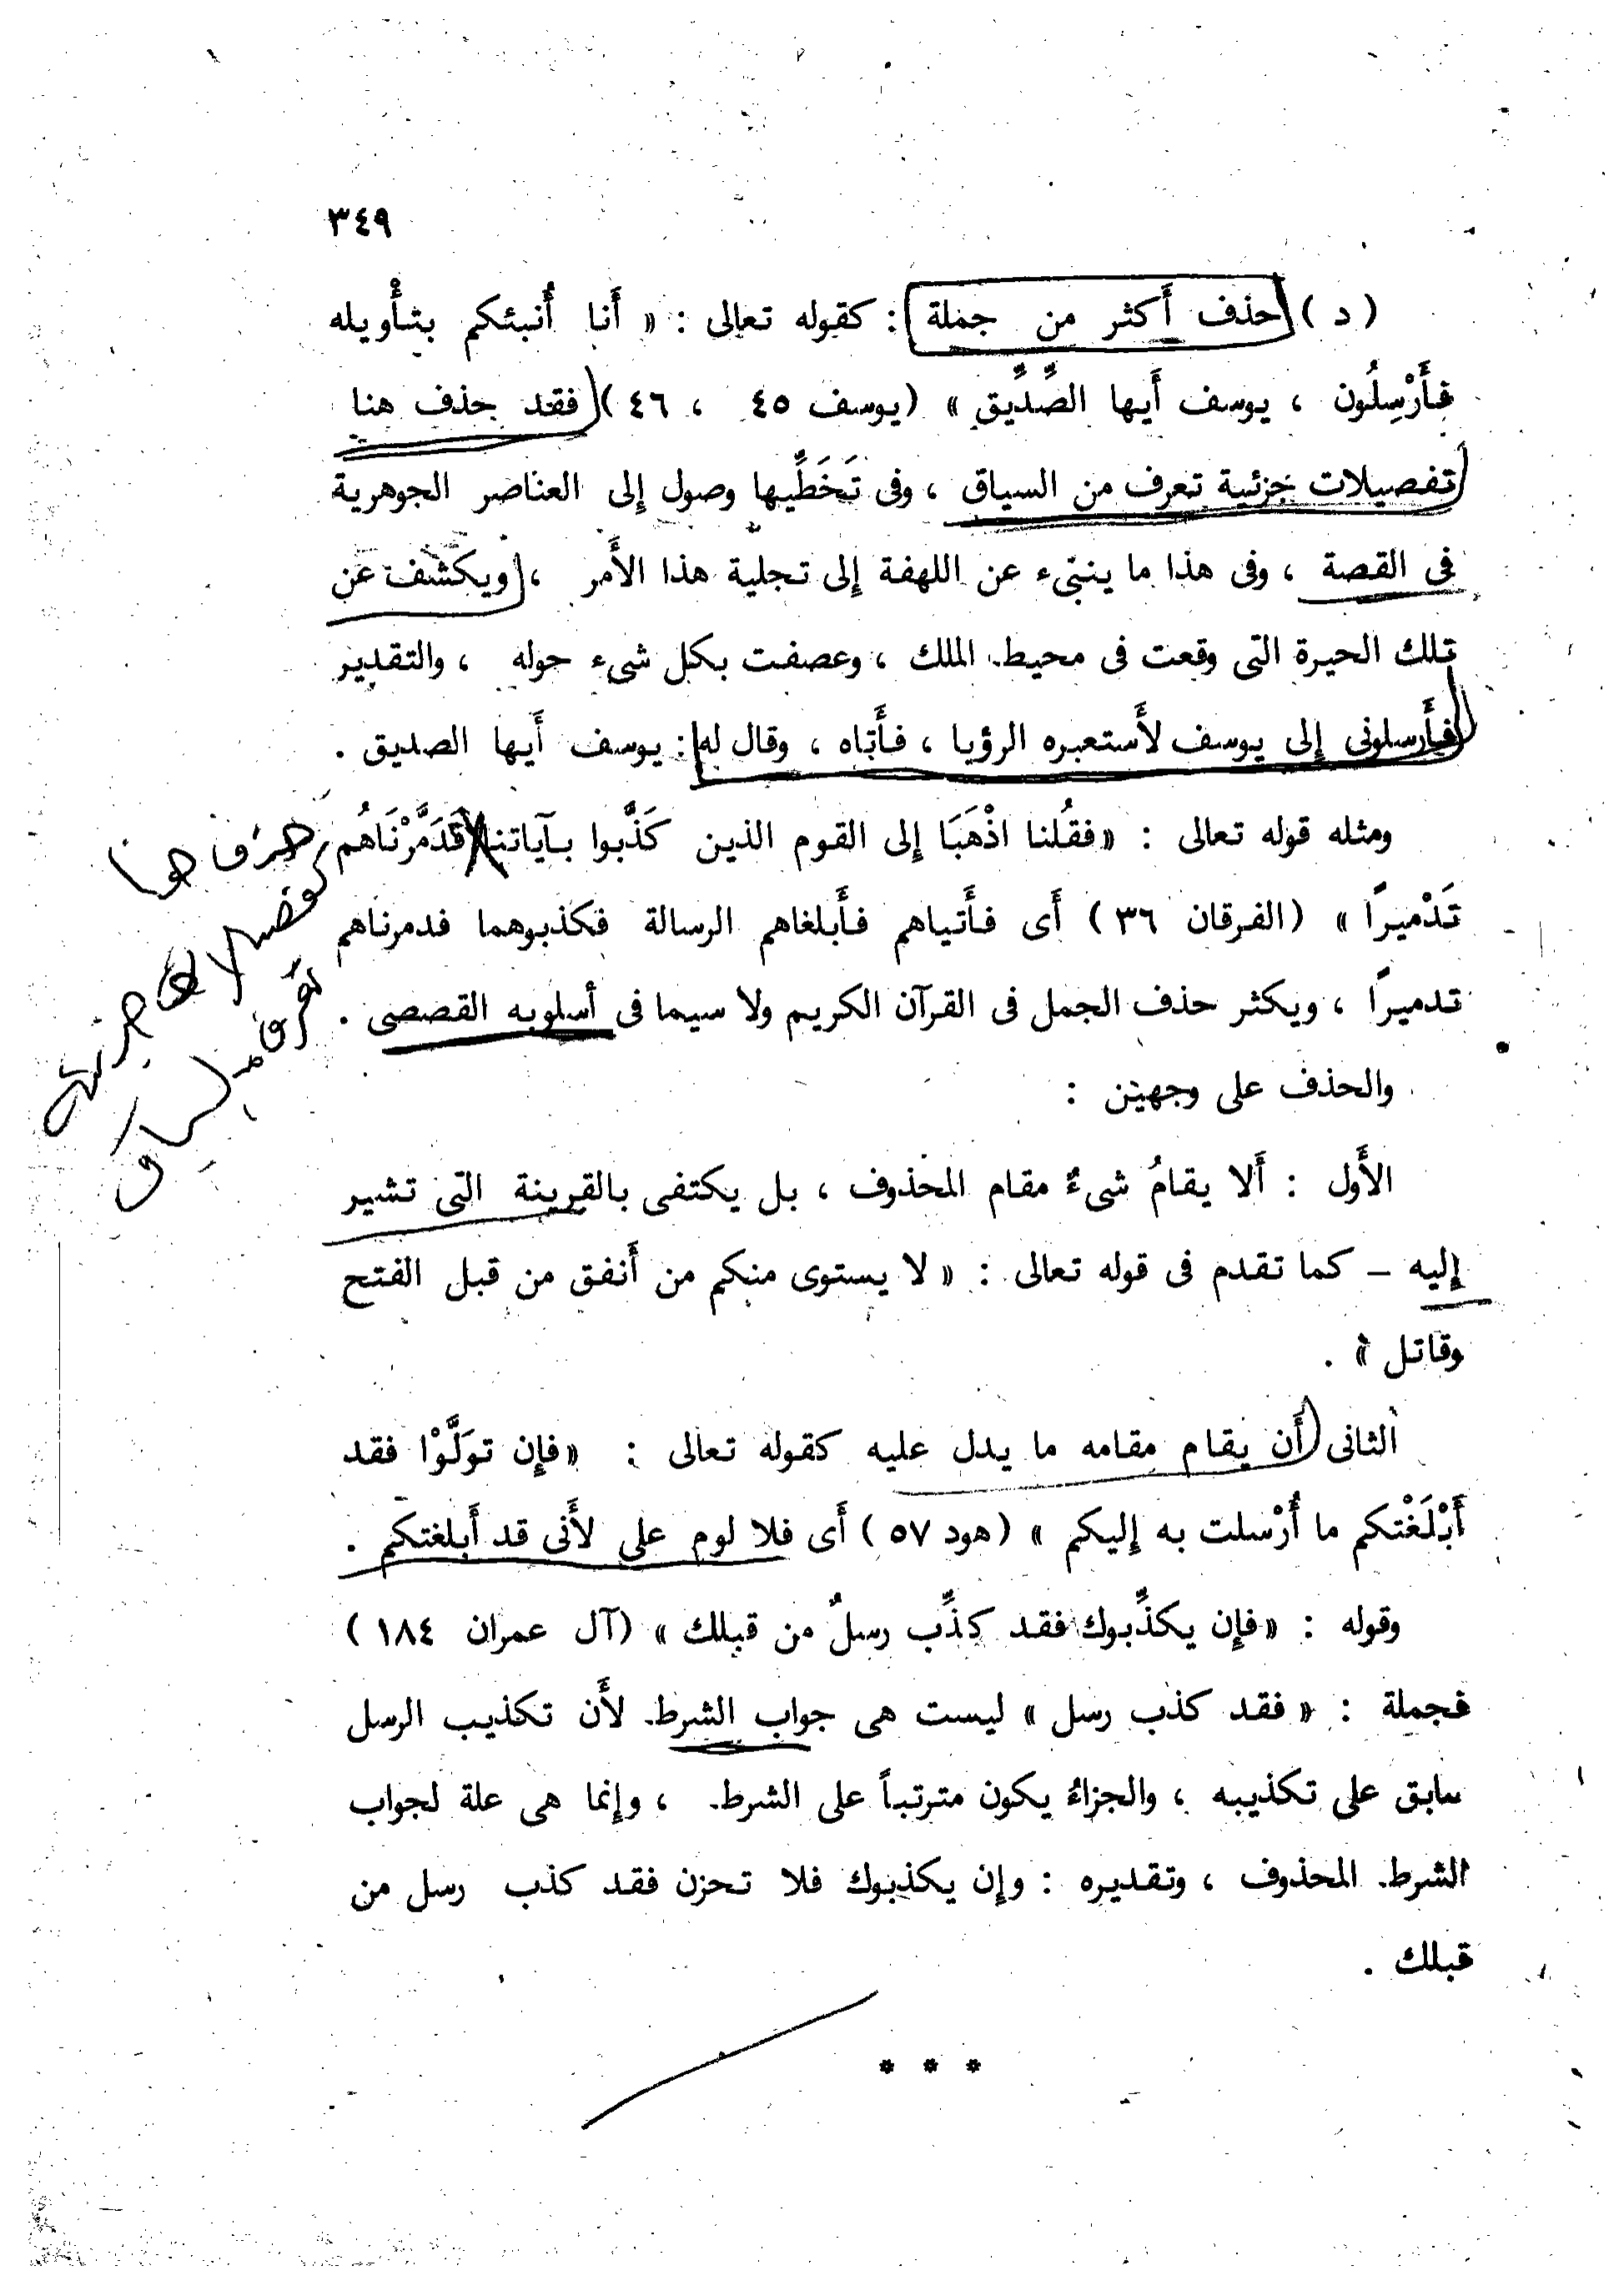 ٣٤٩
( د ) حذف أَكثر من جملة : كقوله تعالى : « أَنا أُنبئكم بتأْويله
فأَرْسِلُون ، يوسف أَيها الصِّدِّيق » (يوسف ٤٥ ، ٤٦) فقد حذف هنا
تفصيلات جزئية تعرف من السياق ، وفى تَخَطِّيها وصول إلى العناصر الجوهرية
فى القصة ، وفى هذا ما ينبىء عن اللهفة إلى تجلية هذا الأَمر ، ويكشف عن
تلك الحيرة التى وقعت فى محيط الملك ، وعصفت بكل شىء حوله ، والتقدير
فأَرسلونى إلى يوسف لأَستعبره الرؤيا ، فأَتاه ، وقال له : يوسف أَيها الصديق .
ومثله قوله تعالى : « فقُلنا اذْهَبَا إلى القوم الذين كَذَّبوا بآياتنا فَدَمَّرْنَاهُم
تَدْميرًا » (الفرقان ٣٦ ) أَى فأَتياهم فأَبلغاهم الرسالة فكذبوهما فدمرناهم
تدميرًا ، ويكثر حذف الجمل فى القرآن الكريم ولا سيما فى أسلوبه القصصى .
والحذف على وجهين :
الأَول : أَلا يقامُ شىءٌ مقام المحذوف ، بل يكتفى بالقرينة التى تشير
إليه – كما تقدم فى قوله تعالى : « لا يستوى منكم من أَنفق من قبل الفتح
وقاتل » .
الثانى أَن يقام مقامه ما يدل عليه كقوله تعالى : « فإن توَلَّوْا فقد
أَبْلَغْتكم ما أُرْسلت به إليكم » (هود ٥٧ ) أَى فلا لوم على لأَنى قد أَبلغتكم .
وقوله : « فإن يكذِّبوك فقد كذِّب رسلٌ من قبلك » (آل عمران ١٨٤ )
فجملة : « فقد كذب رسل » ليست هى جواب الشرط لأَن تكذيب الرسل
سابق على تكذيبه ، والجزاءُ يكون مترتباً على الشرط ، وإنما هى علة لجواب
الشرط المحذوف ، وتقديره : وإن يكذبوك فلا تحزن فقد كذب رسل من
قبلك .
* * *
حذف هنا
تفصيلات جزئية
تعرف من السياق